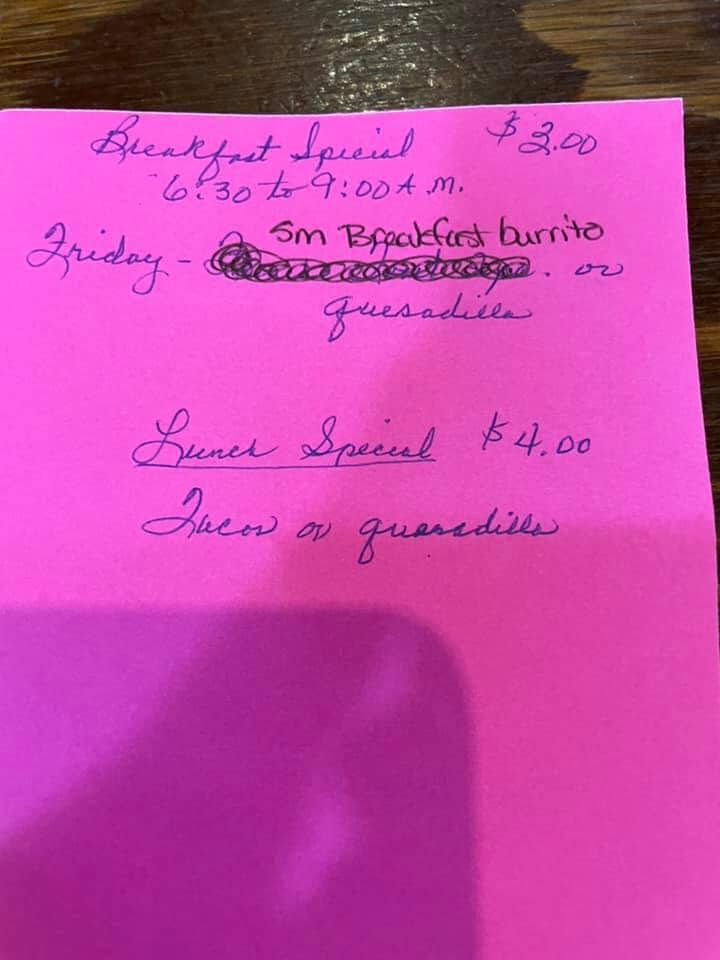 Breakfast Special $3.00
6:30 to 9:00 A.M.
Sm Breakfast burrito
Friday - or
quesadilla
Lunch Special $4.00
Tacos or quesadilla